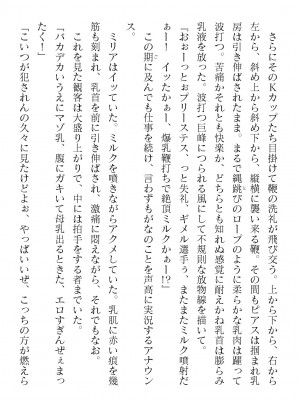 さらにそのKカップたち目掛けて鞭の洗礼が飛び交う。上から下から、右から
左から、斜め上から斜め下から、縦横に襲い来る鞭。その間もピアスは掴まれ乳
房は引き伸ばされたまま。まるで縄跳びのロープのように柔らかな乳肉は躍って
波打つ。苦痛かそれとも快楽か、どちらとも知れぬ感覚に耐えかね乳首は膨らみ
乳液を放つ。波打つ巨峰につられる風にして不規則な放物線を描いて。
「おぉーっとぉープリーステス、っと失礼、ギメル選手ぅ、またまたミルク噴射だ
ぁー！　イッたかぁー、爆乳鞭打ちで絶頂ミルクかぁー!?」
この期に及んでも仕事を続け、言わずもがなのことを声高に実況するアナウン
ミリアはイッていた。ミルクを噴きながらアクメしていた。乳肌に赤い痕を幾
筋も刻まれ、乳首を前に引き伸ばされ、激痛に悶えながら、それでもなお。
これを見た観客は大盛り上がりで、中には拍手をする者までいた。
「バカデカいうえにマゾ乳、腹にガキいて母乳出るときた、エロすぎんぞぁまっ
たく！」
「こいつが犯されんの久々に見たけどよぉ、やっぱいいぜ、こっちの方が燃えら